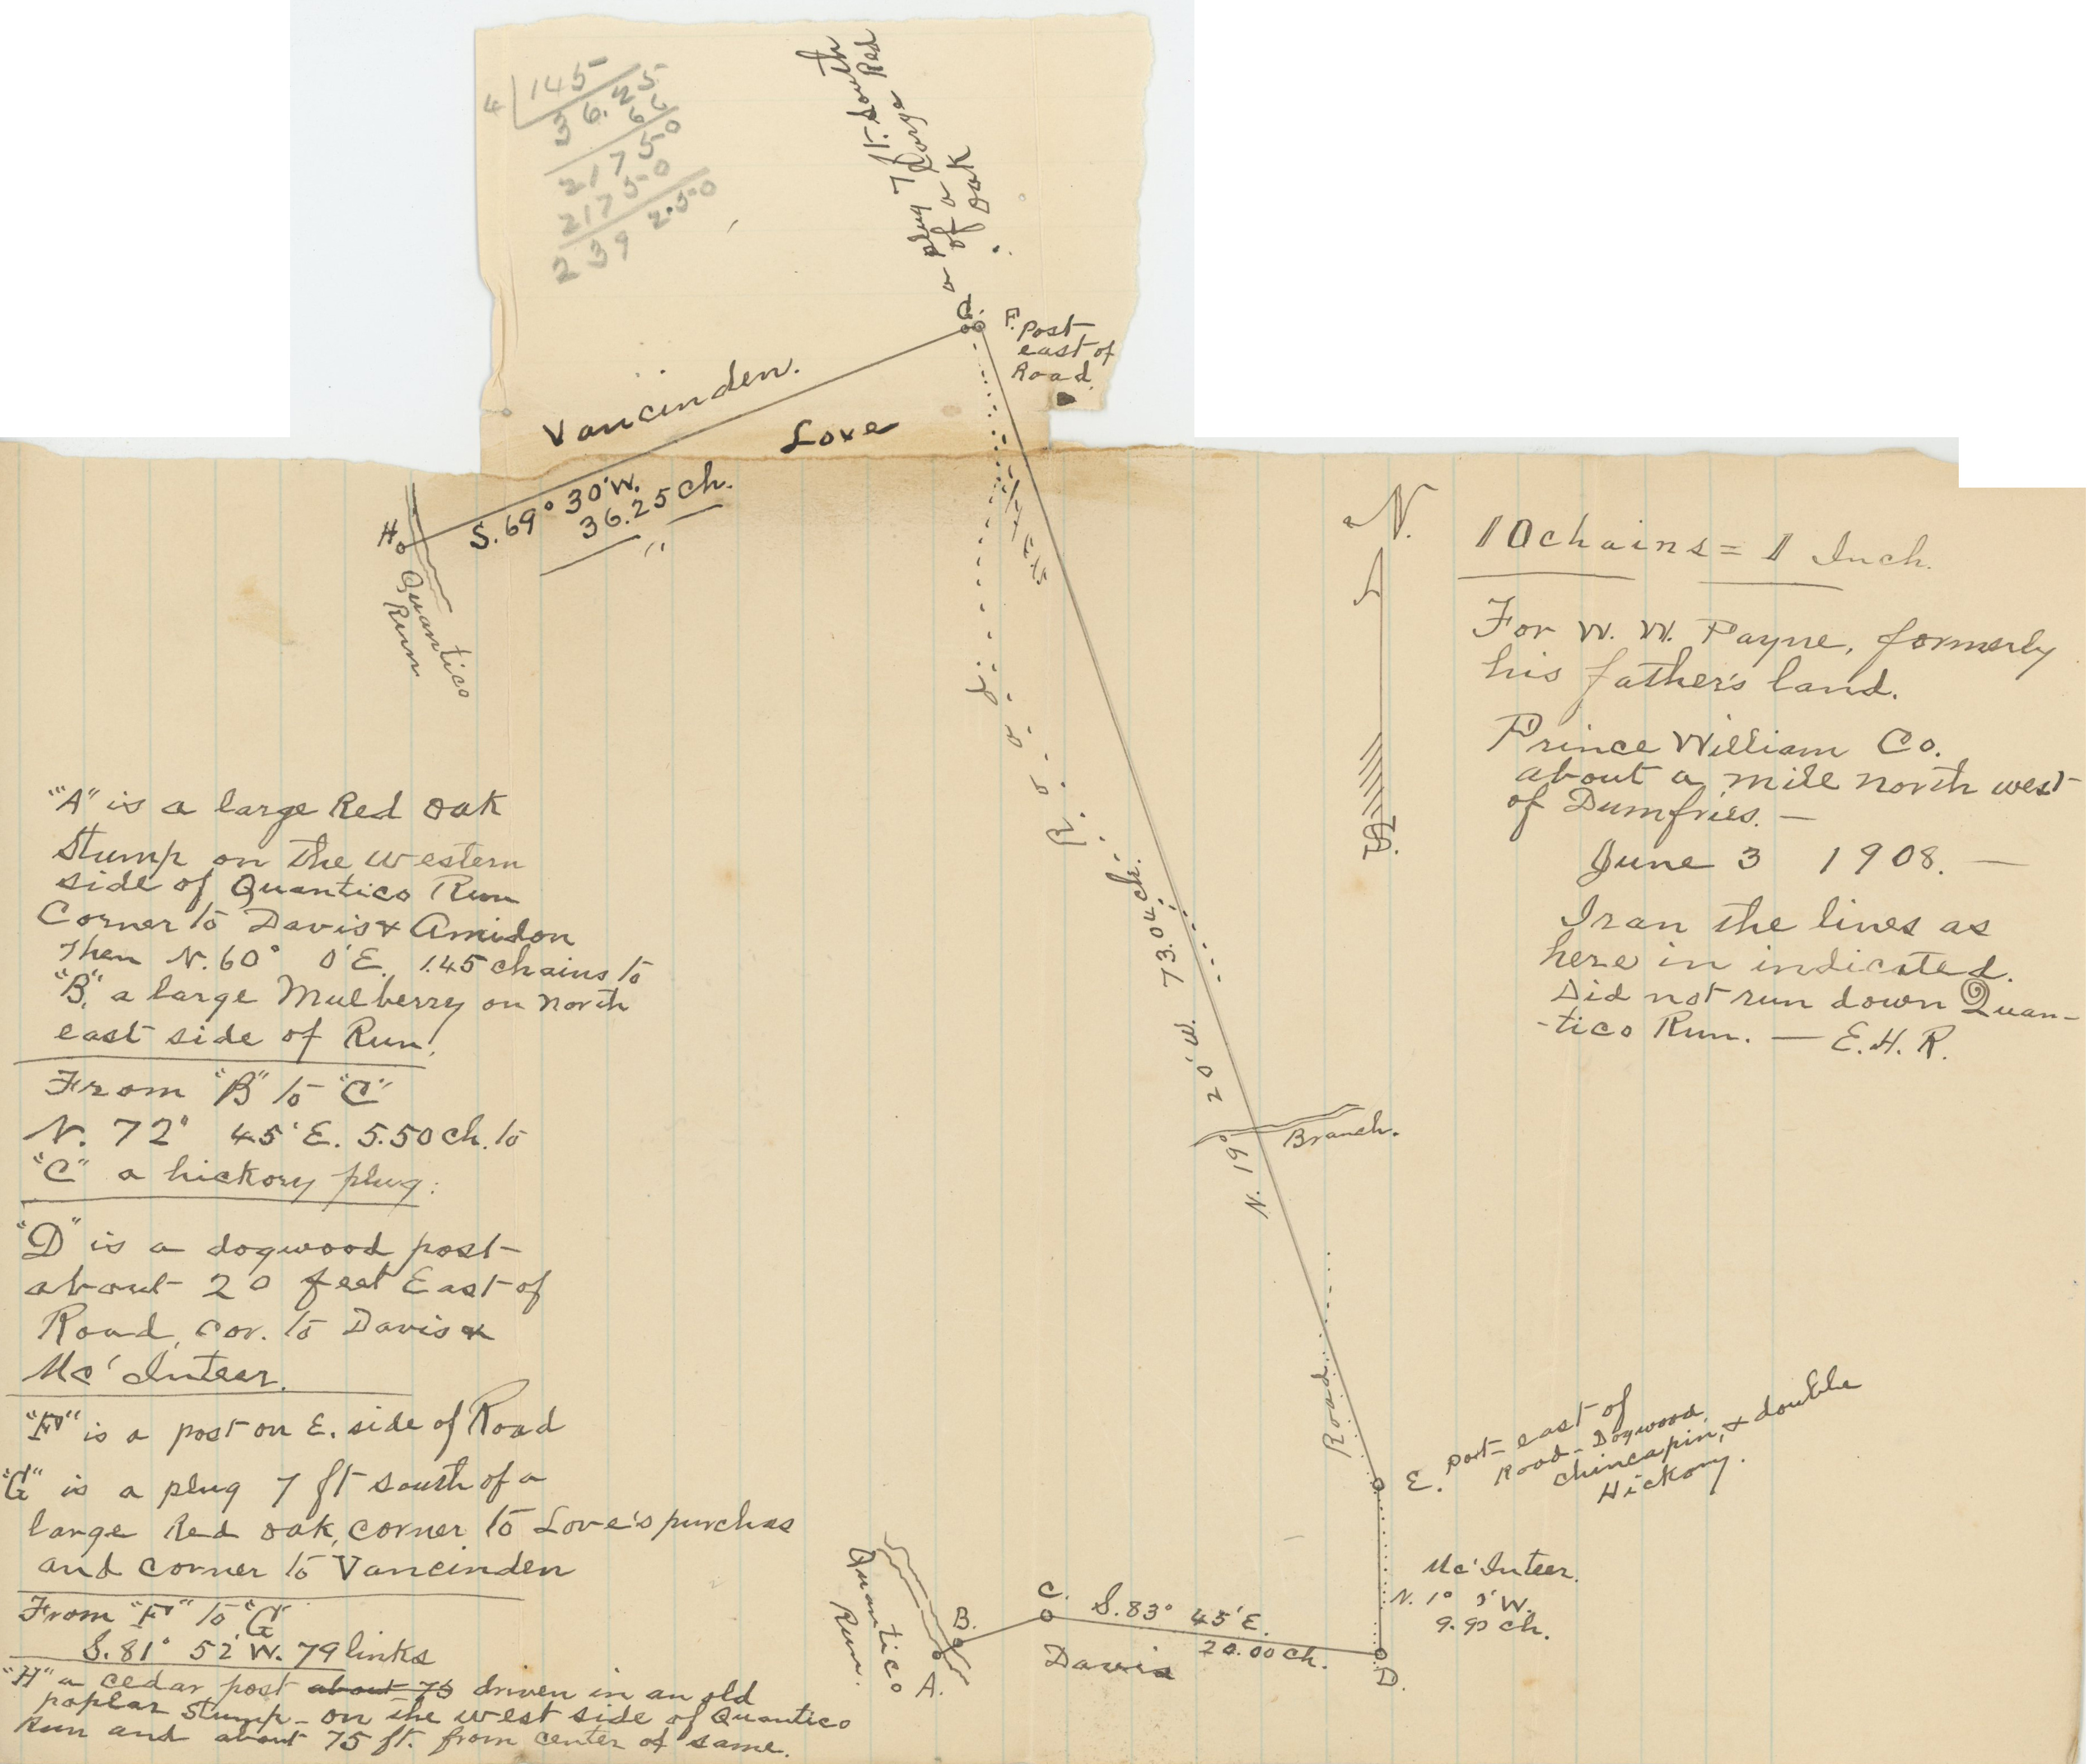 4 | 145
36.25
66
21750
21750
239 2.50
a plug 7 ft. South
of a Large Red
Oak
G.
F. Post
east of
Road.
Vancinden.
Love
S. 69° 30' W.
36.25 ch.
H.
Quantico
Run
N.
S.
10 chains = 1 Inch.
For W. W. Payne, formerly
his father's land.
Prince William Co.
about a mile north west
of Dumfries. —
June 3 1908. —
I ran the lines as
here in indicated.
Did not run down Quan-
-tico Run. — E. H. R.
Road
N. 19° 20' W. 73.04 ch.
Branch.
Road
"A" is a large Red Oak
Stump on the western
side of Quantico Run
Corner to Davis & Amidon
Then N. 60° 0' E. 1.45 chains to
"B", a large Mulberry on north
east side of Run.
From "B" to "C"
N. 72° 45' E. 5.50 ch. to
"C" a hickory plug.
"D" is a dogwood post
about 20 feet East of
Road, cor. to Davis &
Mc'Inteer.
"F" is a post on E. side of Road
"G" is a plug 7 ft south of a
large Red oak, corner to Love's purchas
and corner to Vancinden
From "F" to "G"
S. 81° 52' W. 79 links
"H" a cedar post about 75 driven in an old
poplar stump - on the west side of Quantico
Run and about 75 ft. from center of same.
E. post east of
Road - Dogwood,
Chincapin, & double
Hickory.
Mc'Inteer.
N. 1° W.
9.90 ch.
Quantico
Run.
A.
B.
C.
S. 83° 45' E.
20.00 ch.
Davis
D.